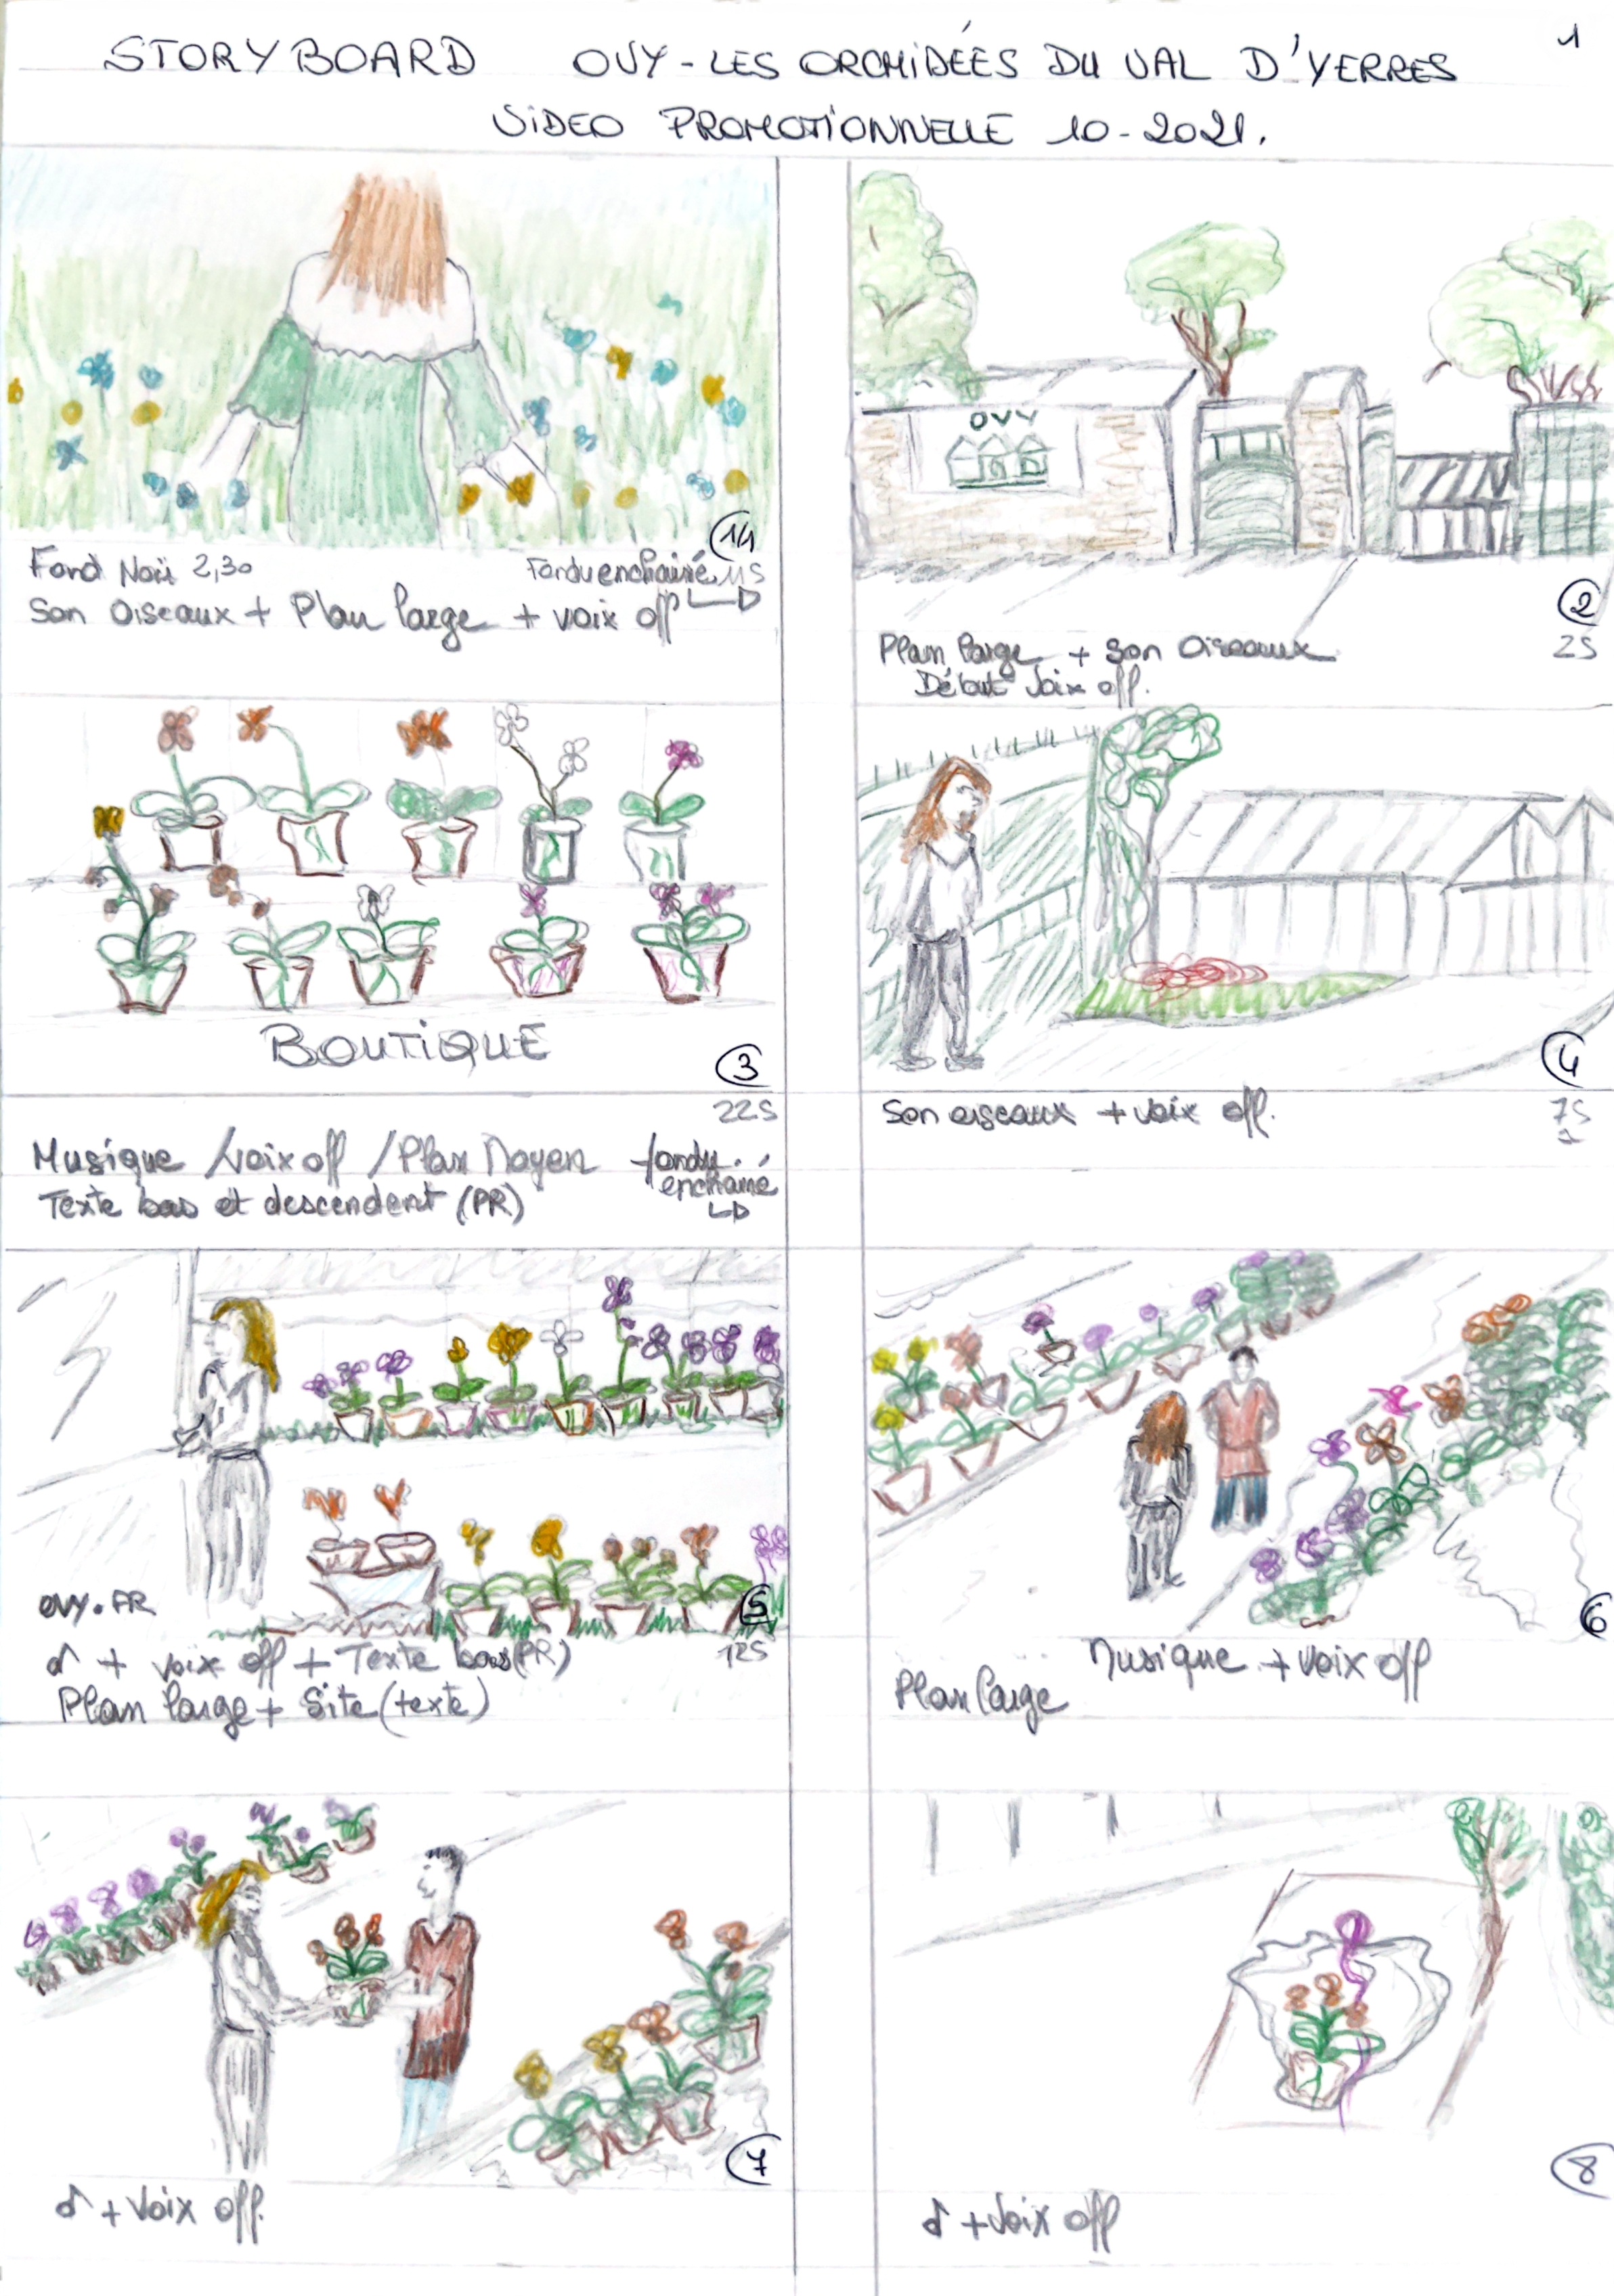 1
STORYBOARD OVY - LES ORCHIDÉES DU VAL D'YERRES
VIDEO PROMOTIONNELLE 10-2021.
Fond Noir 2,30 Fondu enchainé
Son Oiseaux + Plan large + voix off
OVY
2
2S
Plan large + Son Oiseaux
Début Voix off.
BOUTIQUE
3
22S
Musique / voix off / Plan Moyen fondu
enchainé
Texte bas et descendent (PR)
4
7S
Son oiseaux + voix off.
OVY.FR
5
12S
♪ + voix off + Texte bas (PR)
Plan large + Site (texte)
6
Plan large Musique + voix off
7
♪ + Voix off.
8
♪ + Voix off